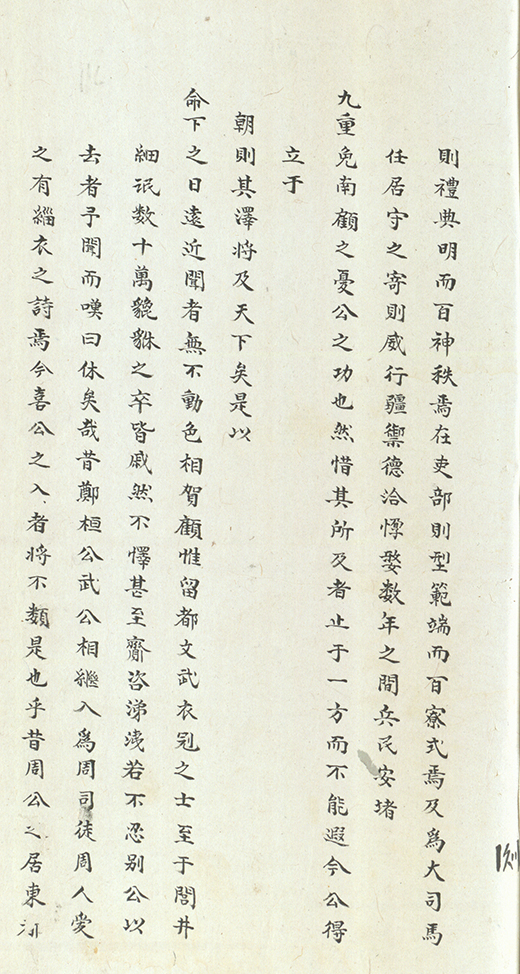 則禮典明而百神秩焉在吏部則型範端而百寮式焉及為大司馬
任居守之寄則威行疆禦德洽惸嫠数年之間兵民安堵
九重免南顧之憂公之功也然惜其所及者止于一方而不能遐今公得
立于
朝則其澤将及天下矣是以
命下之日遠近聞者無不動色相賀顧惟留都文武衣冠之士至于閭井
細氓数十萬貔貅之卒皆戚然不懌甚至齎咨涕洟若不忍别公以
去者予聞而嘆曰休矣哉昔鄭桓公武公相繼入為周司徒周人愛
之有緇衣之詩焉今喜公之入者将不類是也乎昔周公之居東